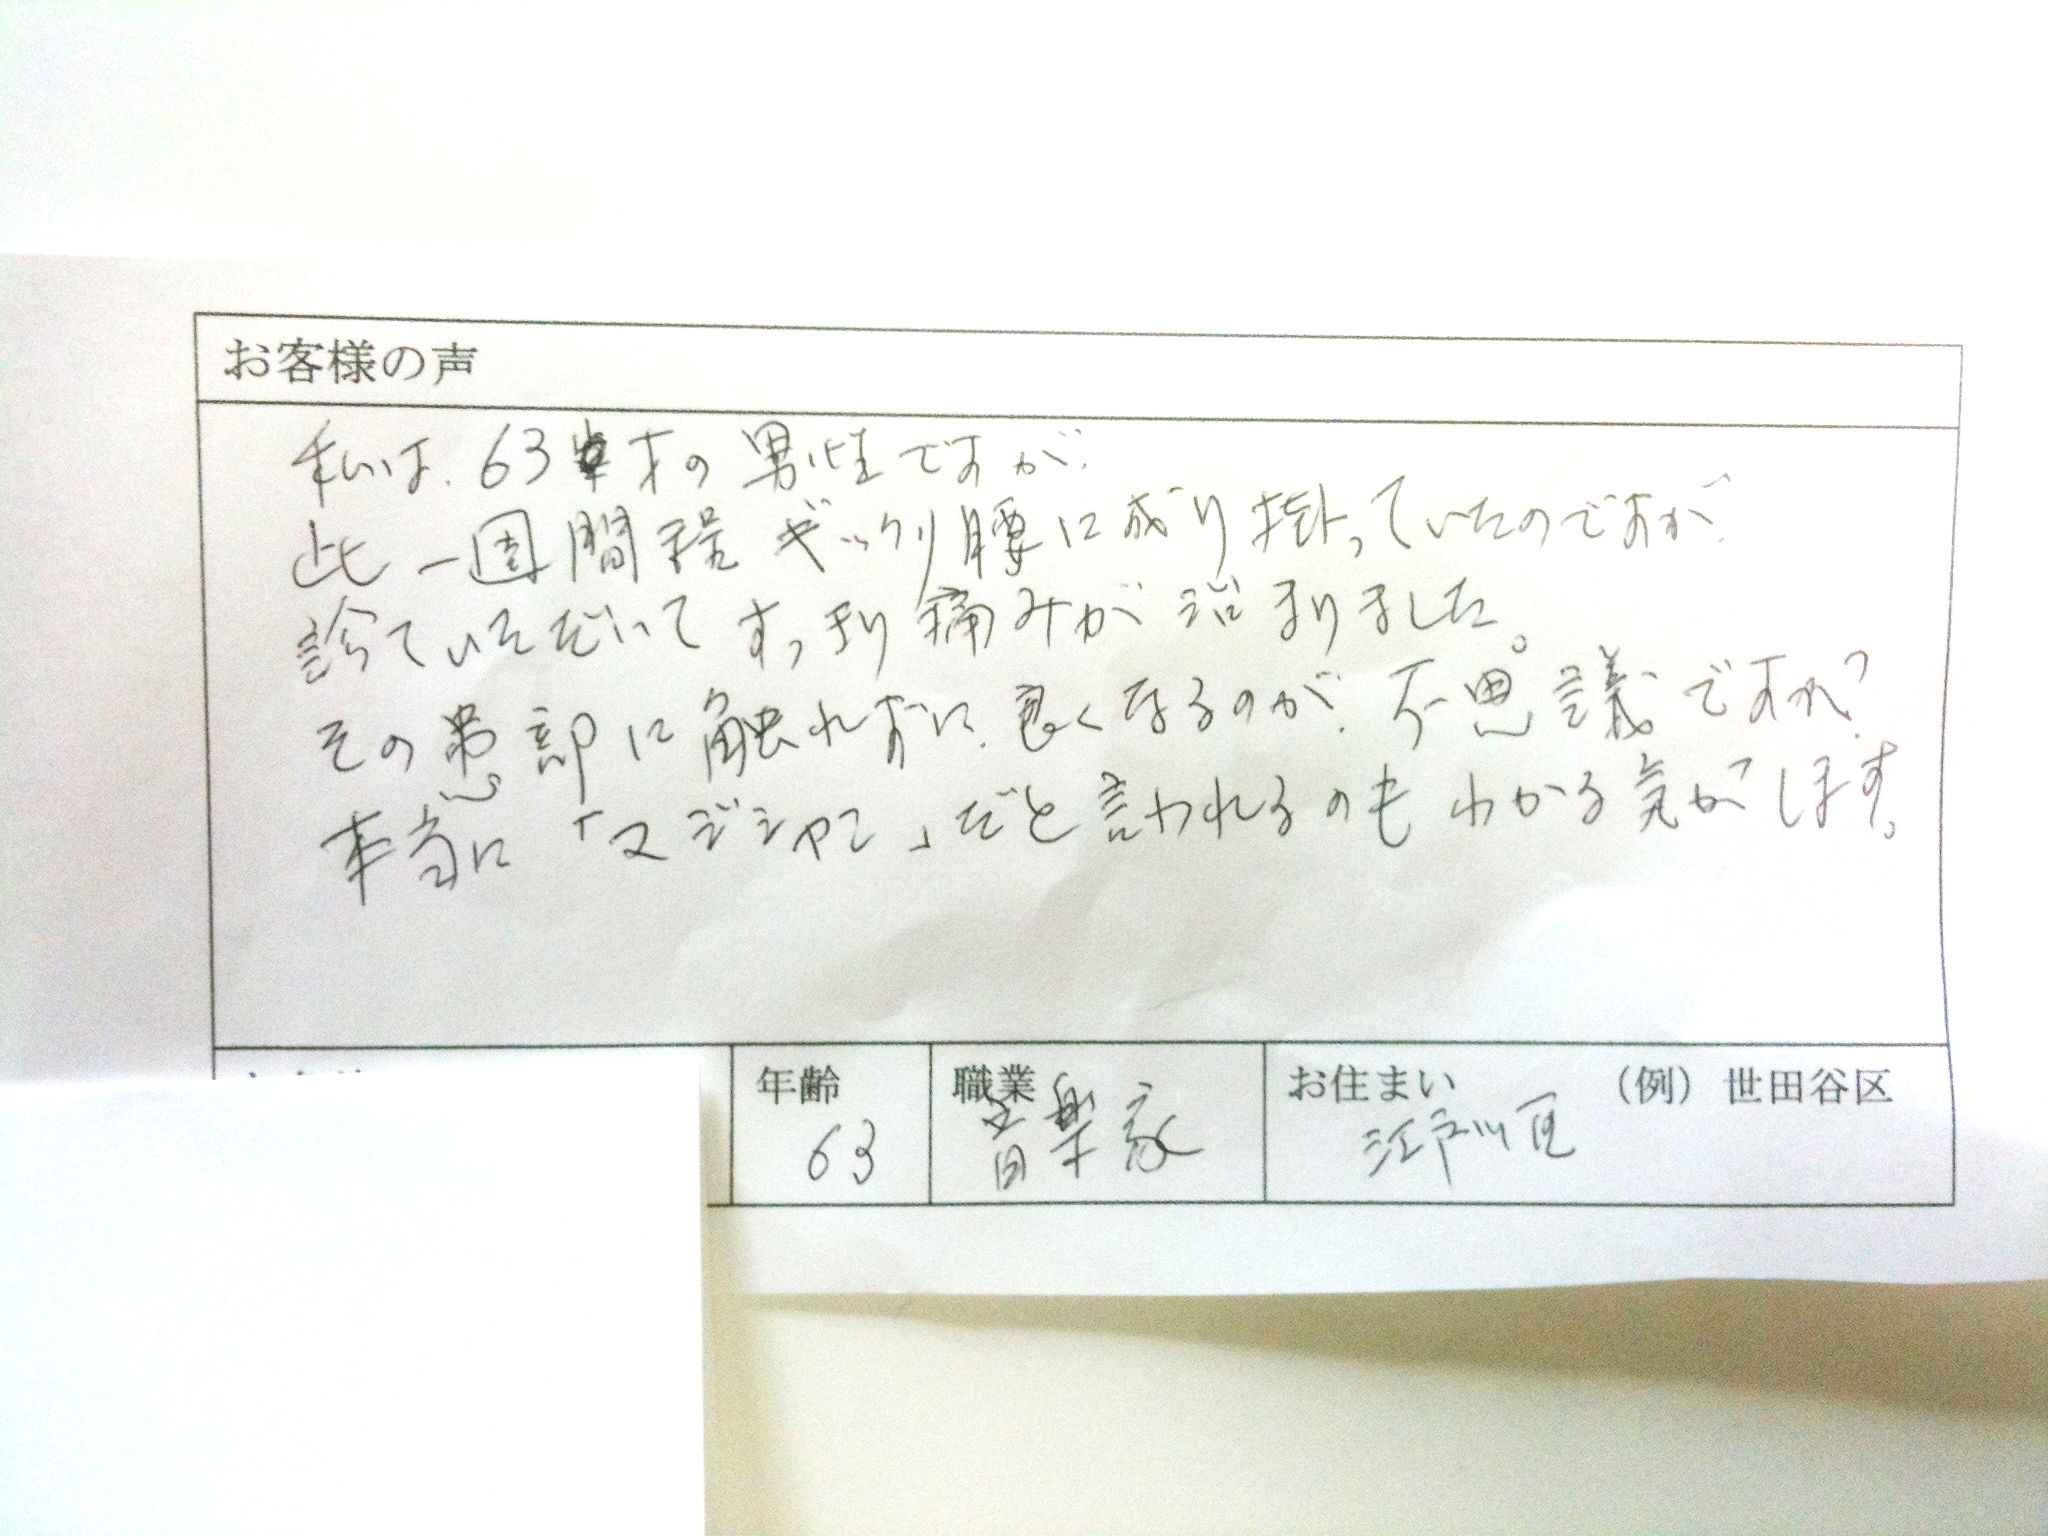 お客様の声
私は、63才の男性ですが、
此一週間程ギックリ腰に成り掛っていたのですが、
診ていただいてすっきり痛みが治まりました。
その患部に触れずに、良くなるのが、不思議ですね?
本当に「マジシャン」だと言われるのもわかる気がします。
年齢 職業 お住まい (例) 世田谷区
63 音楽家 江戸川区